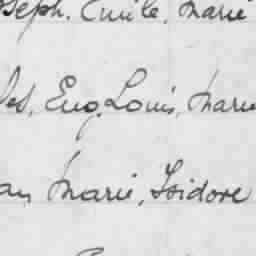 oseph. Emile, Marie
es, Eug. Louis, Marie
an Marie, Isidore